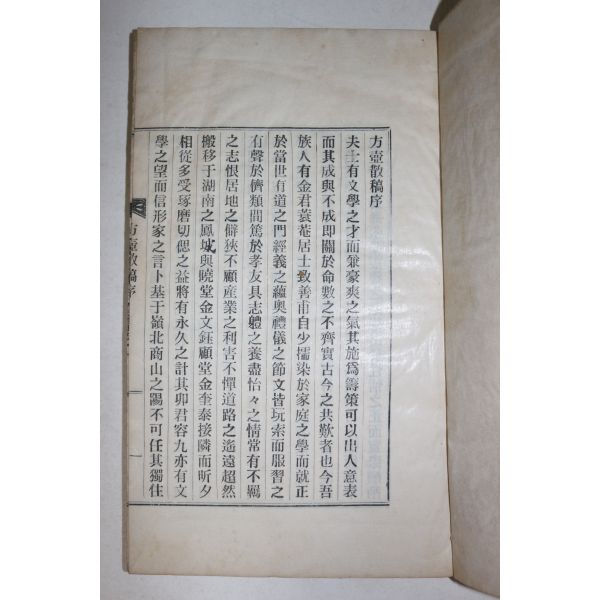 方壺散稿序
夫士有文學之才而兼豪爽之氣其施爲籌策可以出人意表
而其成與不成即關於命數之不齊實古今之共歎者也今吾
族人有金君蓑菴居士致善甫自少擩染於家庭之學而就正
於當世有道之門經義之蘊奧禮儀之節文皆玩索而服習之
有聲於儕類間篤於孝友具志軆之養盡怡々之情常有不羈
之志恨居地之僻狹不顧産業之利害不憚道路之遙遠超然
搬移于湖南之鳳城與曉堂金文鈺顧堂金奎泰接隣而昕夕
相從多受琢磨切偲之益將有永久之計其卯君容九亦有文
學之望而信形家之言卜基于嶺北商山之陽不可任其獨住
方壺散稿序